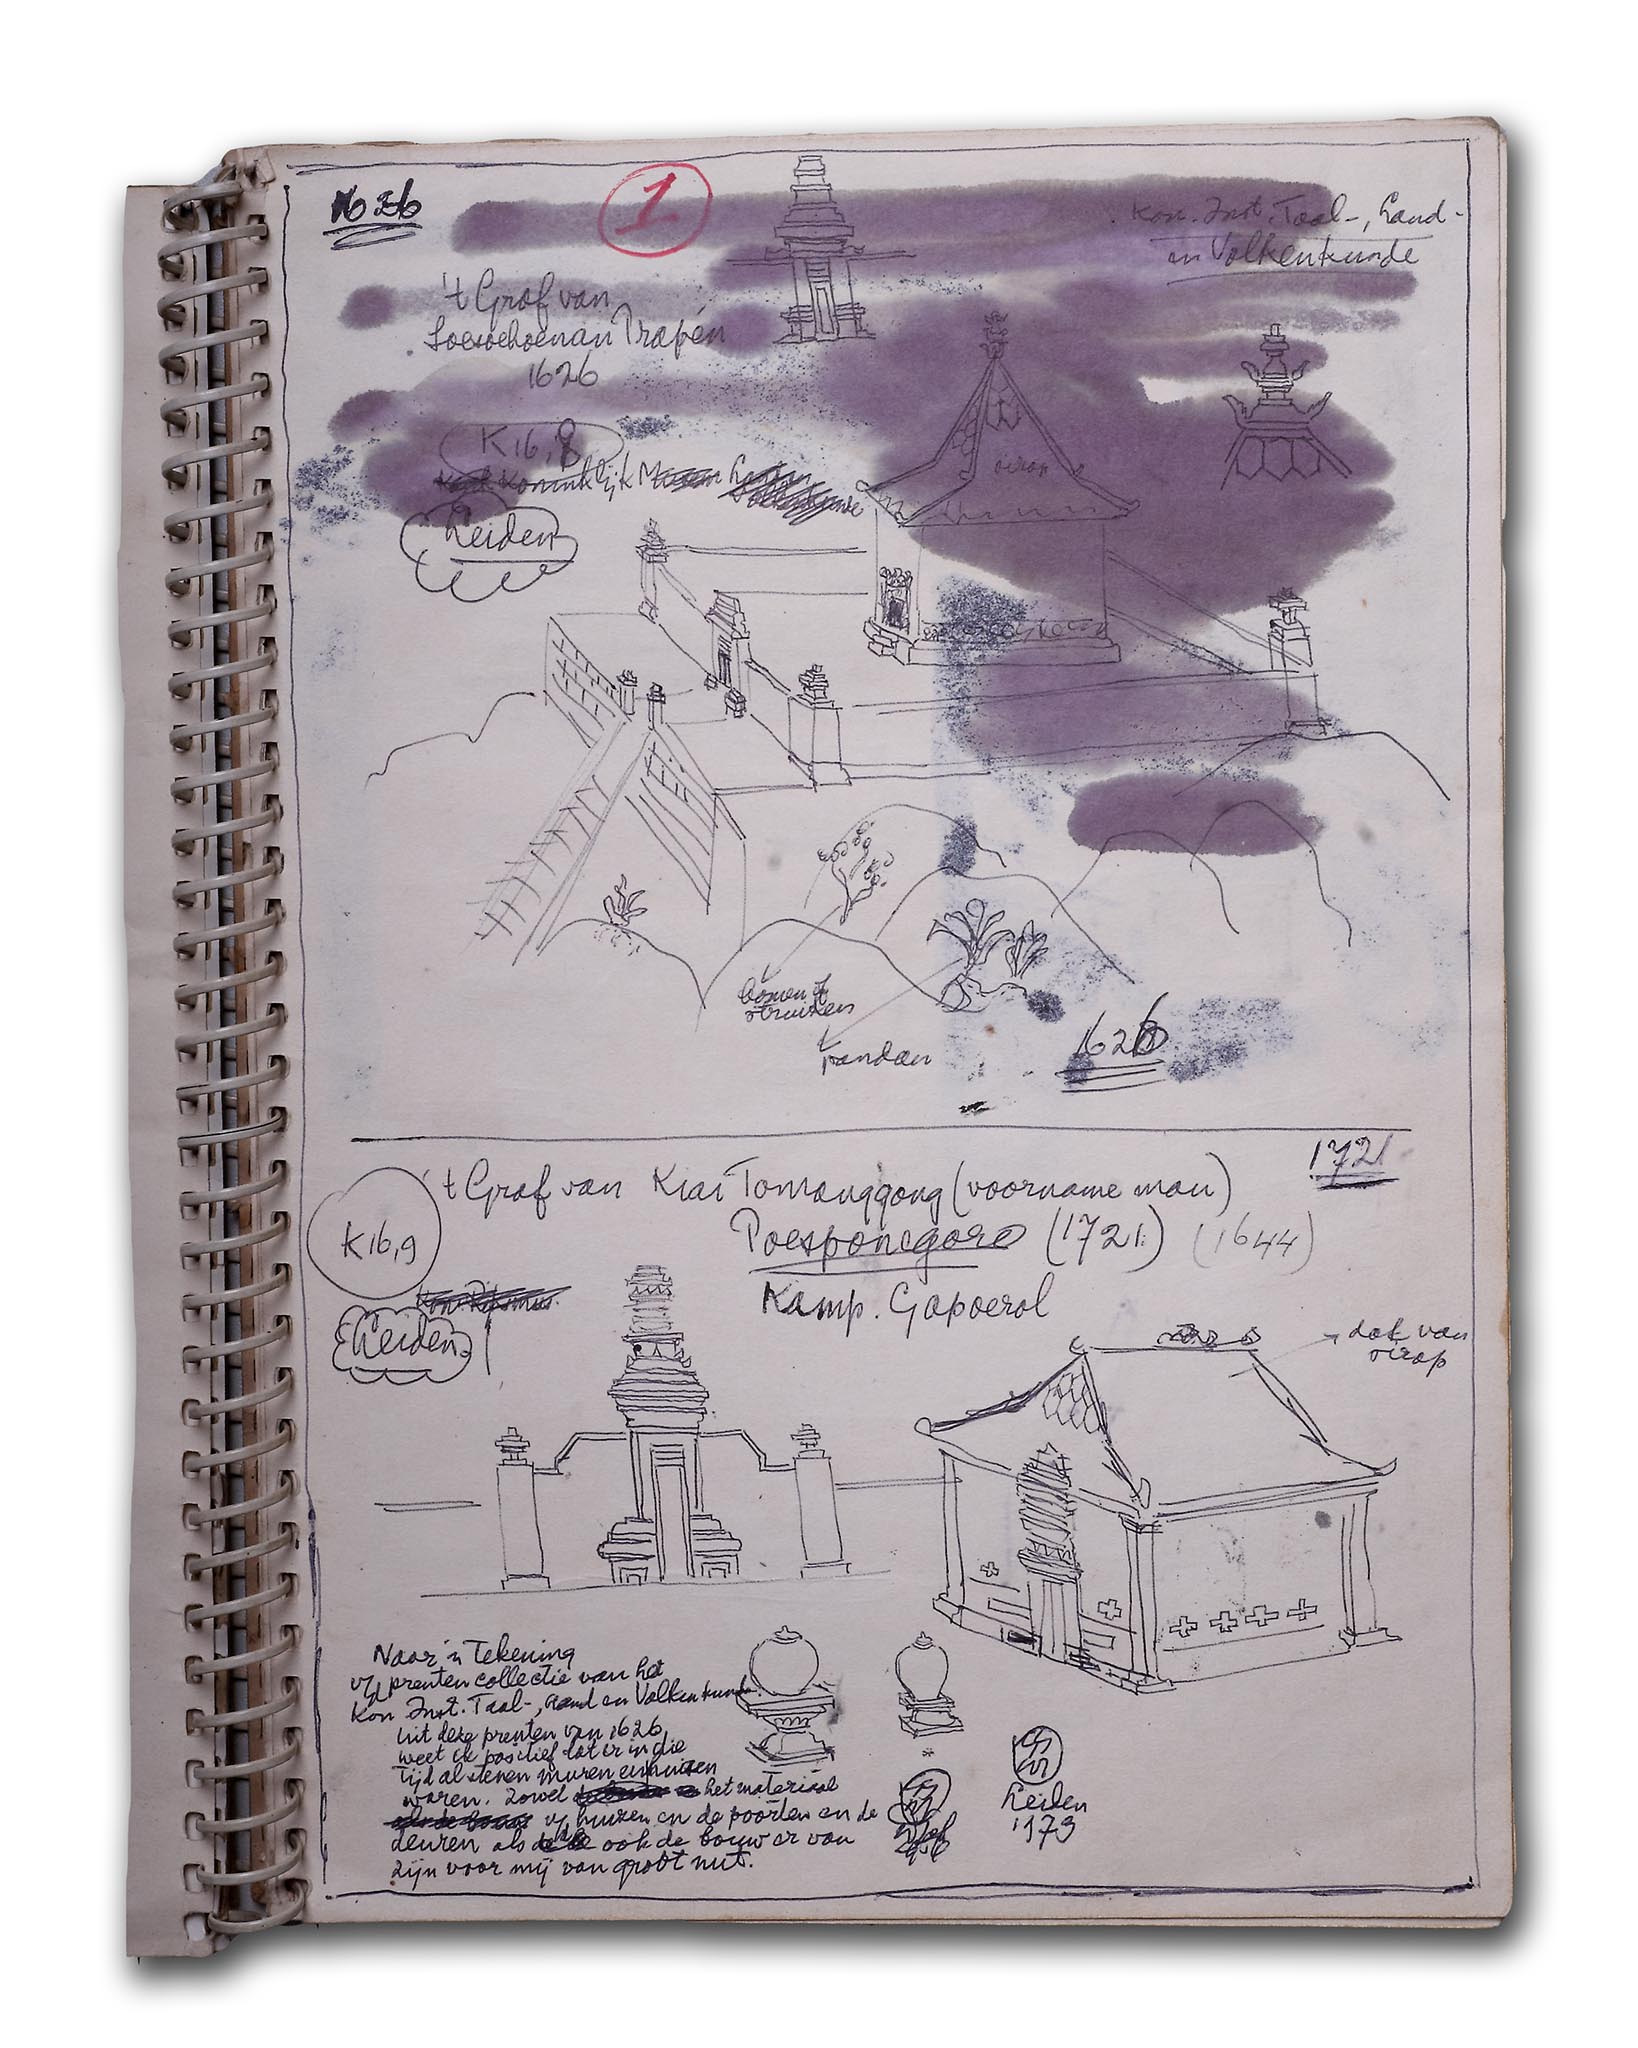 1626
1
Kon. Inst. Taal-, Land-
en Volkenkunde
't Graf van
Soesoehoenan Prapén
1626
K16,8
Koninklijk
Leiden
sirap
bomen of
struiken
pandan
1626
1721
't Graf van Kiai Tomanggong (voorname man)
K16,9
Poesponegoro (1721) (1644)
Kamp. Gapoerol
Kon. Rijksmus.
Leiden
dak van
sirap
Naar 'n Tekening
v/d prentencollectie van het
Kon Inst. Taal-, Land en Volkenkunde
Uit deze prenten van 1626
weet ik positief dat er in die
tijd al stenen muren en huizen
waren. Zowel het materiaal
v/ huizen en de poorten en de
deuren als ook de bouw er van
zijn voor mij van groot nut.
Leiden
'173